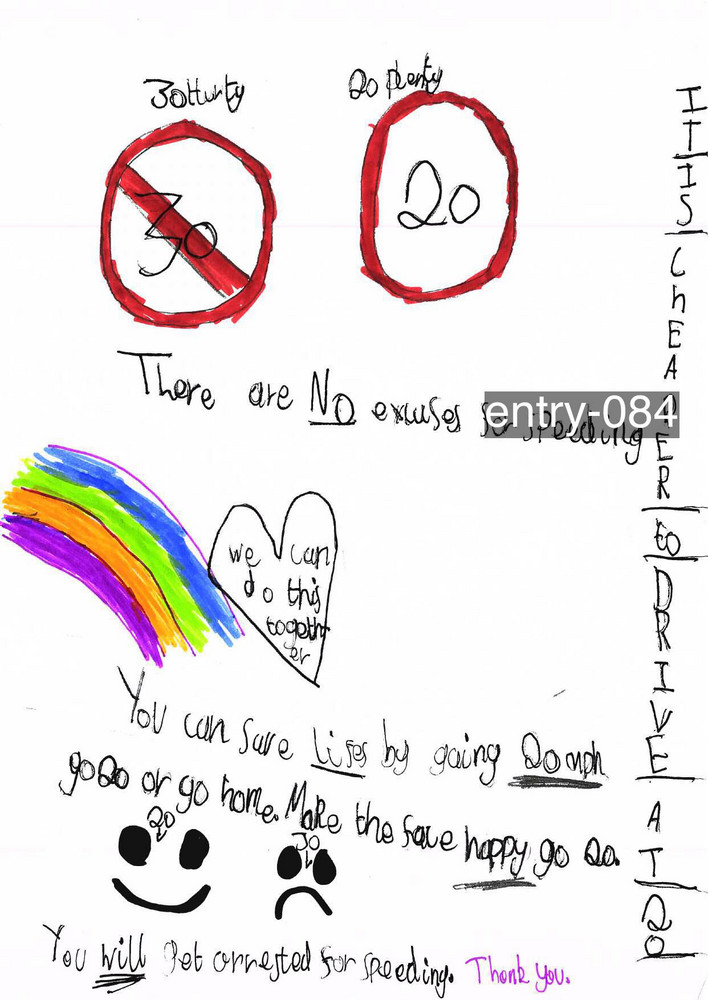 30thurty
20 plenty
30
20
There are No excuses for speeding
entry-084
we can
do this
togeth
er
You can save lifes by going 20 mph
go 20 or go home. Make the face happy go 20.
20
30
You will get arrested for speeding. Thank you.
IT IS ChEAPER to DRIVE AT 20